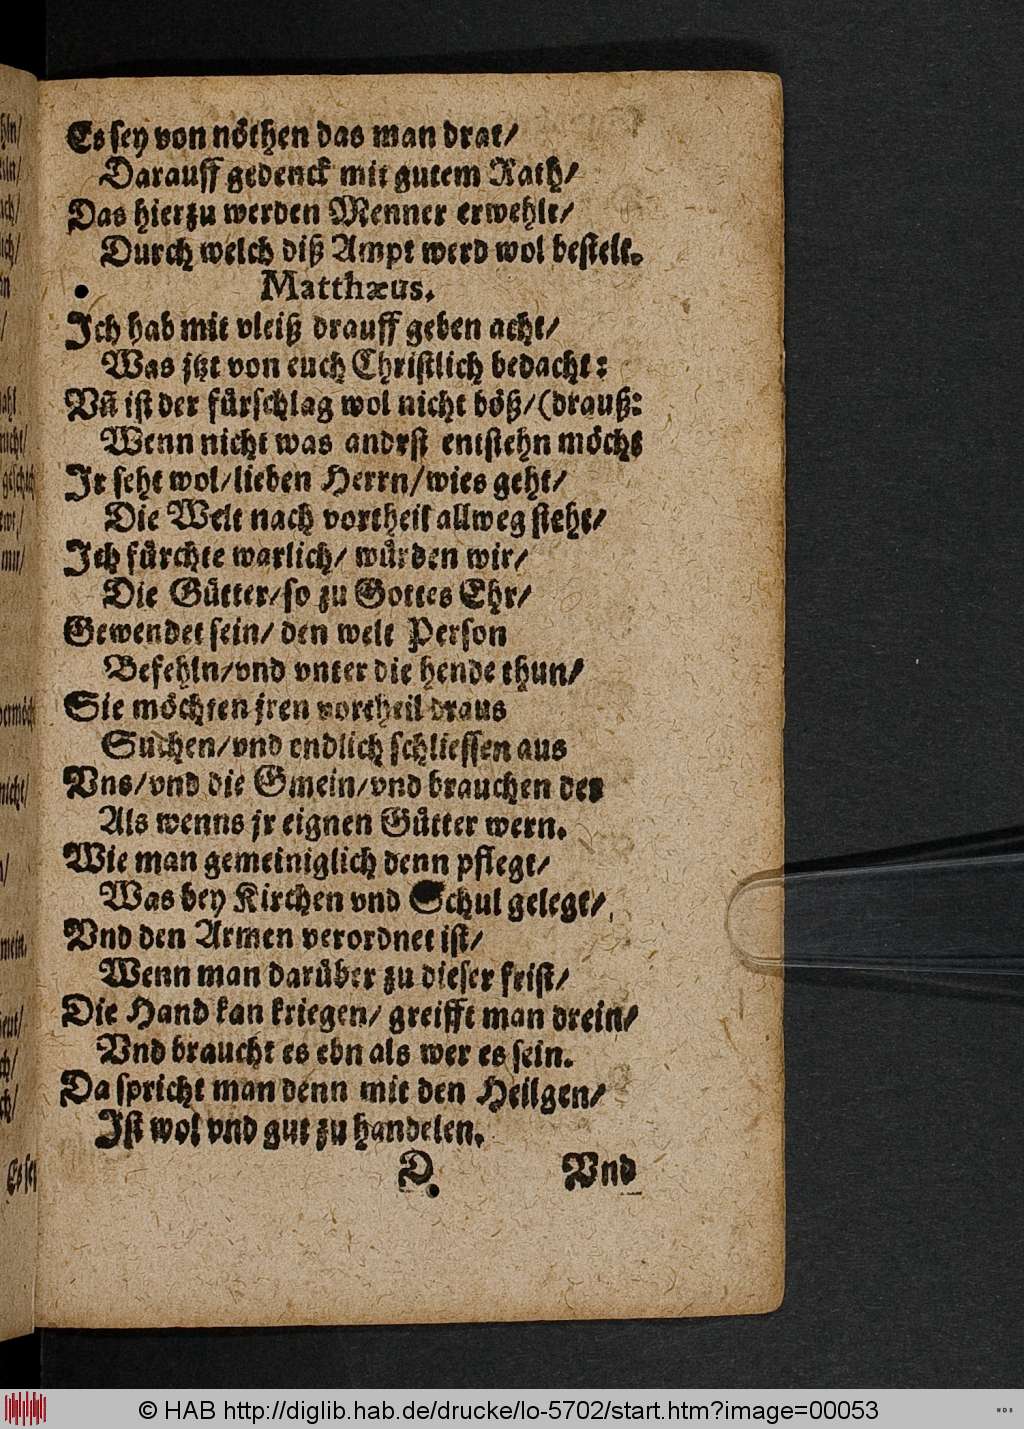 Es sey von nöthen das man drat/
Darauff gedenck mit gutem Rath/
Das hierzu werden Menner erwehlt/
Durch welch diß Ampt werd wol bestelt.
Matthæus.
Ich hab mit vleiß drauff geben acht/
Was jtzt von euch Christlich bedacht:
Vñ ist der fürschlag wol nicht böß/(drauß:
Wenn nicht was andrst entstehn möcht
Ir seht wol/lieben Herrn/wies geht/
Die Welt nach vortheil allweg steht/
Ich fürchte warlich/ würden wir/
Die Gütter/so zu Gottes Ehr/
Gewendet sein/ den welt Person
Befehln/vnd vnter die hende thun/
Sie möchten jren vortheil draus
Suchen/vnd endlich schliessen aus
Vns/vnd die Gmein/vnd brauchen der
Als wenns jr eignen Gütter wern.
Wie man gemeiniglich denn pflegt/
Was bey Kirchen vnd Schul gelegt/
Vnd den Armen verordnet ist/
Wenn man darüber zu dieser frist/
Die Hand kan kriegen/ greifft man drein/
Vnd braucht es ebn als wer es sein.
Da spricht man denn mit den Heilgen/
Ist wol vnd gut zu handelen.
D. Vnd
© HAB http://diglib.hab.de/drucke/lo-5702/start.htm?image=00053